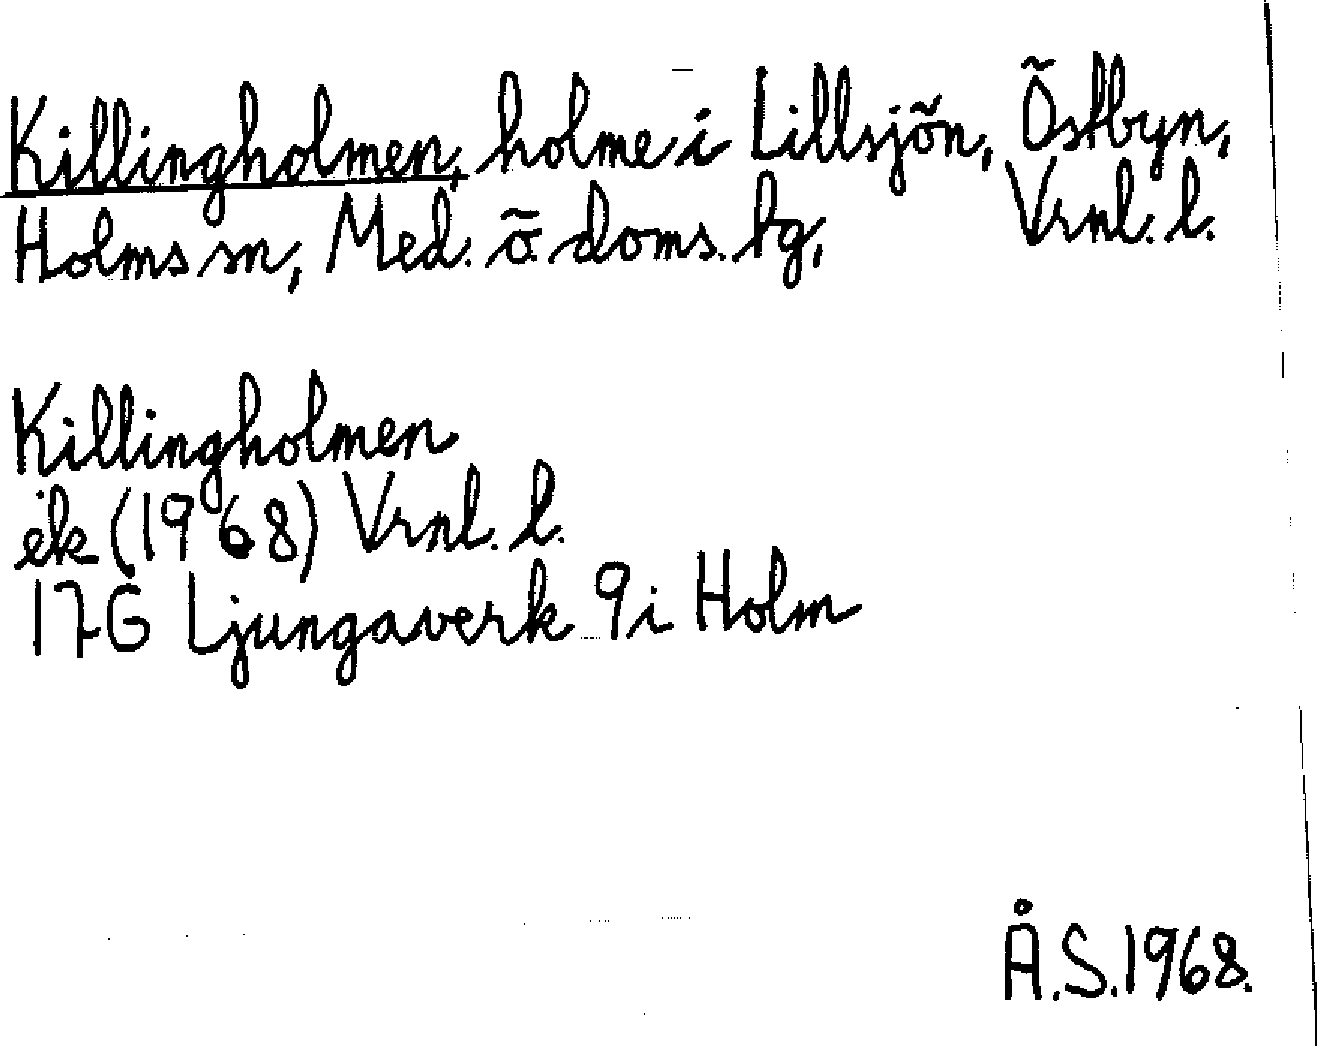 Killingholmen, holme i Lillsjön, Östbyn,
Holms sn, Med. ö doms. tg, Vrnl. l.
Killingholmen
ek (1968) Vrnl. l.
17G Ljungaverk 9i Holm
Å.S. 1968.